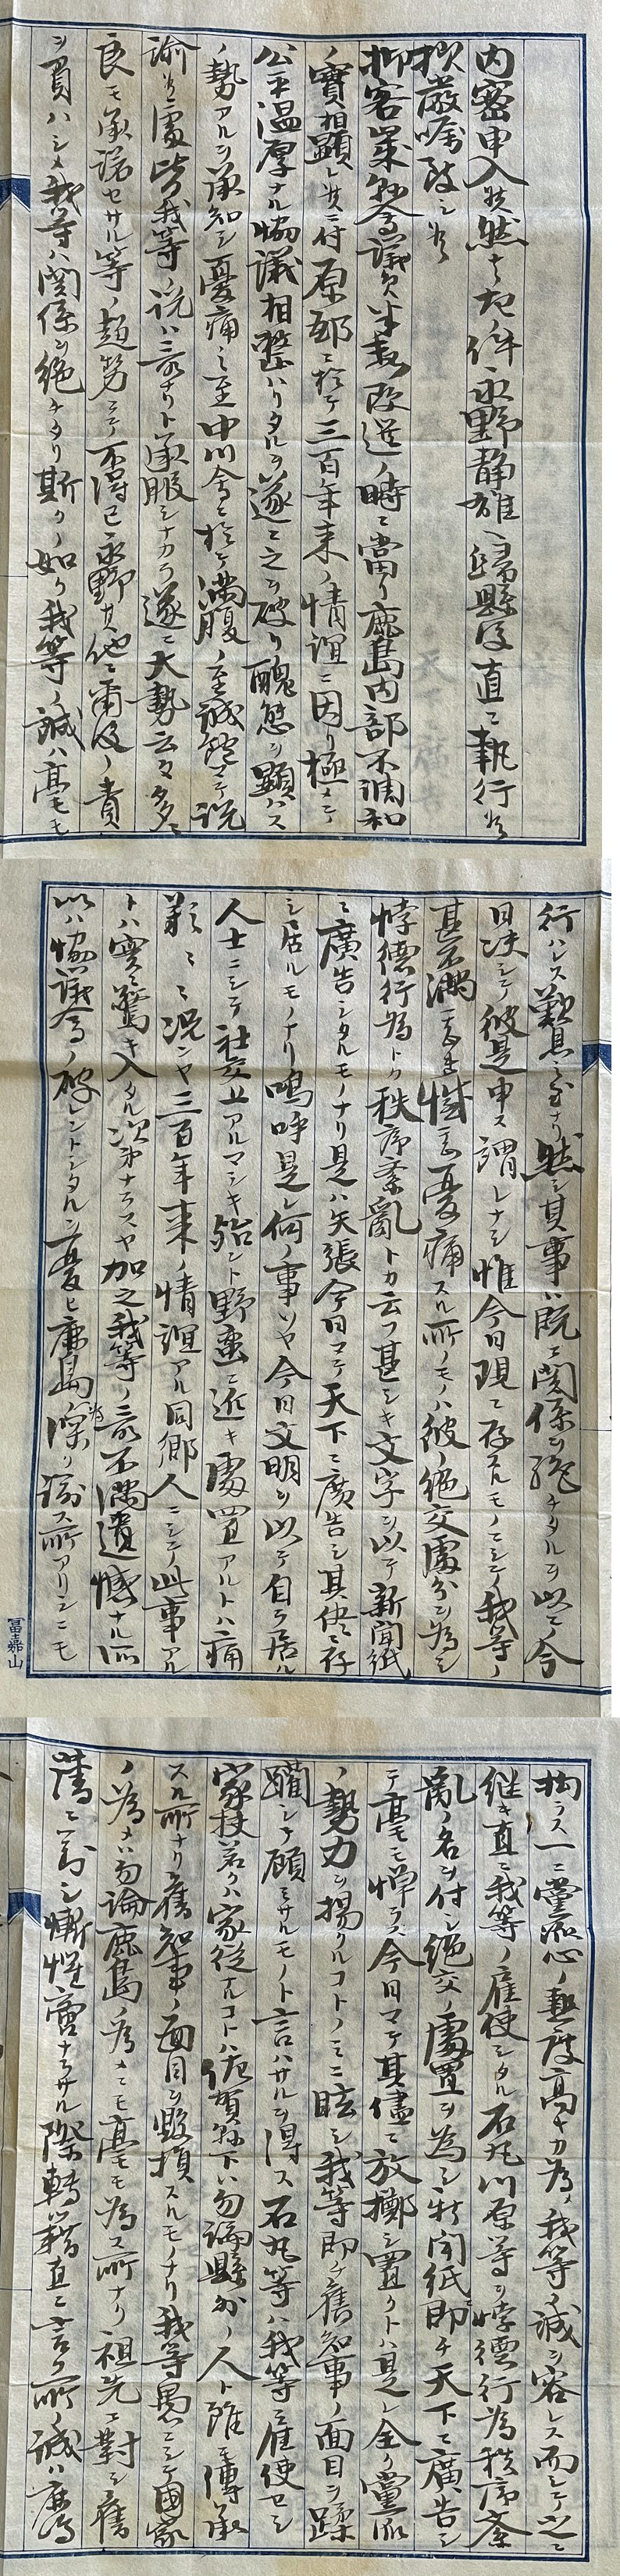 内密申入候然ハ左件永野静雄ヘ帰縣後直ニ執行候
様厳嘱致シ候
抑客歳縣会議員半数改選ノ時ニ當リ鹿島内部不調和
ノ實相顕レ候ニ付原郡ニ於テ三百年来ノ情誼ニ因リ極メテ
公平温厚ナル協議相整ハリタルヲ遂ニ之ヲ破リ醜態ヲ顕ハス
ノ勢アルヲ承知シ憂痛ノ至中川舎ニ於テ満腹ノ至誠ヲ以テ説
諭候處皆我等ノ説ハ言ナリト承服シナカラ遂ニ大勢云々多ニ
良モ承諾セサル等ノ趨勢ニテ不得已永野其他ニ爾後ノ責
ヲ負ハシメ我等ハ関係ヲ絶チタリ斯クノ如ク我等ノ誠ハ毫モ
行ハレス歎息ノ至ナリ然シ其事ハ既ニ関係ヲ絶チタルヲ以テ今
日決シテ彼是申ス謂レナシ惟今日現ニ存スルモノニシテ我等ノ
甚不満ニ憂痛スル所ノモノハ彼ノ絶交處分ヲ為シ
悖徳行為トカ秩序紊乱トカ云フ甚シキ文字ヲ以テ新聞紙
ニ廣告シタルモノナリ是ハ矢張今日マテ天下ニ廣告シ其侭ニ存
シ居ルモノナリ嗚呼是レ何ノ事ソヤ今日文明ヲ以テ自ラ居ル
人士ニシテ社交上アルマシキ殆ント野蛮ニ近キ處置アルトハ痛
歎ニ況ンヤ三百年来ノ情誼アル同郷人ニシテ此事アル
トハ實ニ驚キ入タル次第ナラスヤ加之我等ノ言不満遺憾ナル所
以ハ協議会ノ破レントシタルヲ憂ヒ鹿島為深ク諭ス所アリシニモ
拘ラス一ニ黨派心ノ熱度高キカ為メ我等ノ誠ヲ容レス而シテ之ニ
継キ直ニ我等ノ雇使シタル石丸川原等ヲ悖徳行為秩序紊
乱ノ名ヲ付シ絶交ノ處置ヲ為シ新聞紙即チ天下ニ廣告シ
テ毫モ憚ラス今日マテ其儘ニ放擲シ置クトハ是レ全ク黨派
ノ勢力ヲ揚クルコトノミニ眩シ我等即チ舊知事ノ面目ヲ蹂
躙シテ顧ミサルモノト言ハサルヲ得ス石丸等ハ我等ニ雇使セシ
家扶若クハ家従ナルコトハ佐賀縣下ハ勿論縣外ノ人ト雖モ傳承
スル所ナリ舊知事ノ面目ヲ毀損スルモノナリ我等愚ニシテ國家
ノ為メハ勿論鹿島ノ為メニモ毫モ為ス所ナク祖先ニ對シ舊
藩ニ對シ慚愧啻ナラサル際轉籍直ニ言フ所ノ誠ハ鹿島
冨嘉山